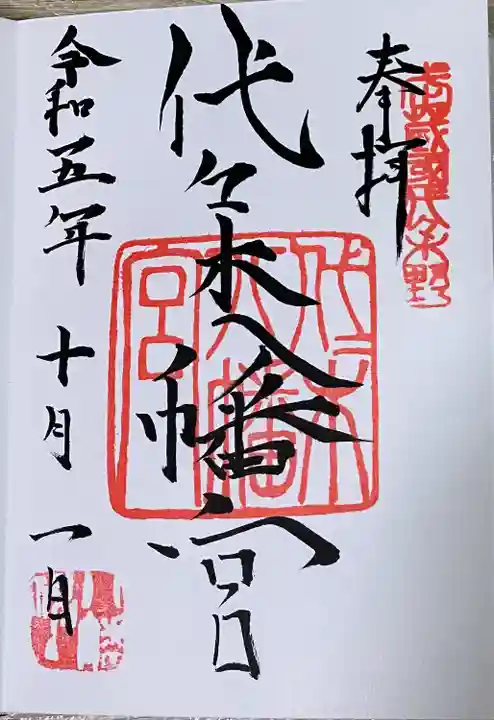 奉拝
武蔵國代々木野
代々木八幡宮
代々木八幡宮
令和五年十月一日